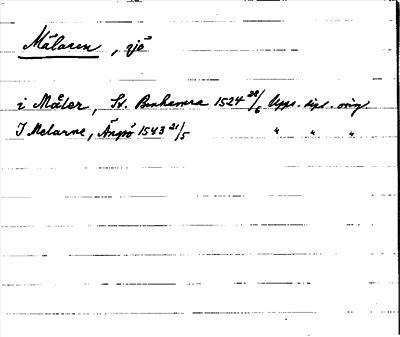 Mälaren, sjö
i Måler, St. Benhamra 1524 28/6 Upps. dipl. orig.
I Melarne, Ängsö 1543 21/5 " " "